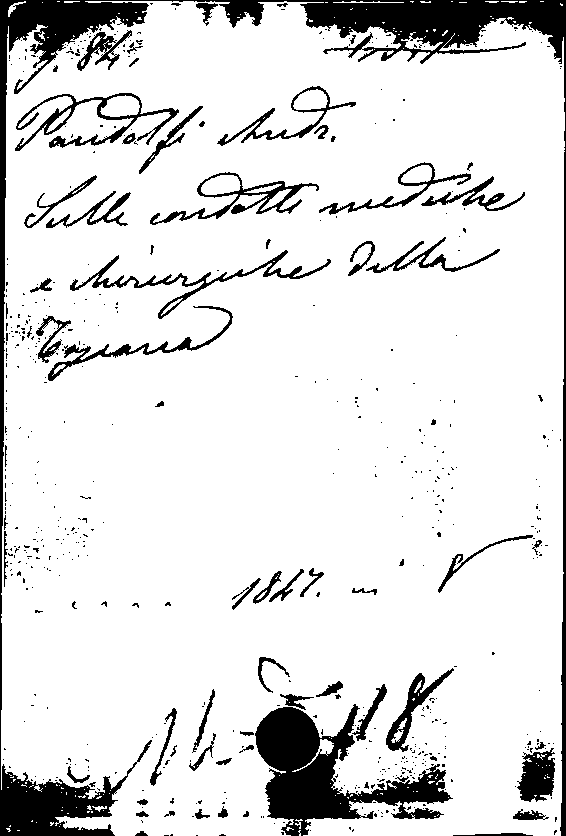 y. 84.
Pandolfi Andr.
Sulle condotte mediche
e chirurgiche della
Toscana
1847. in 8
118